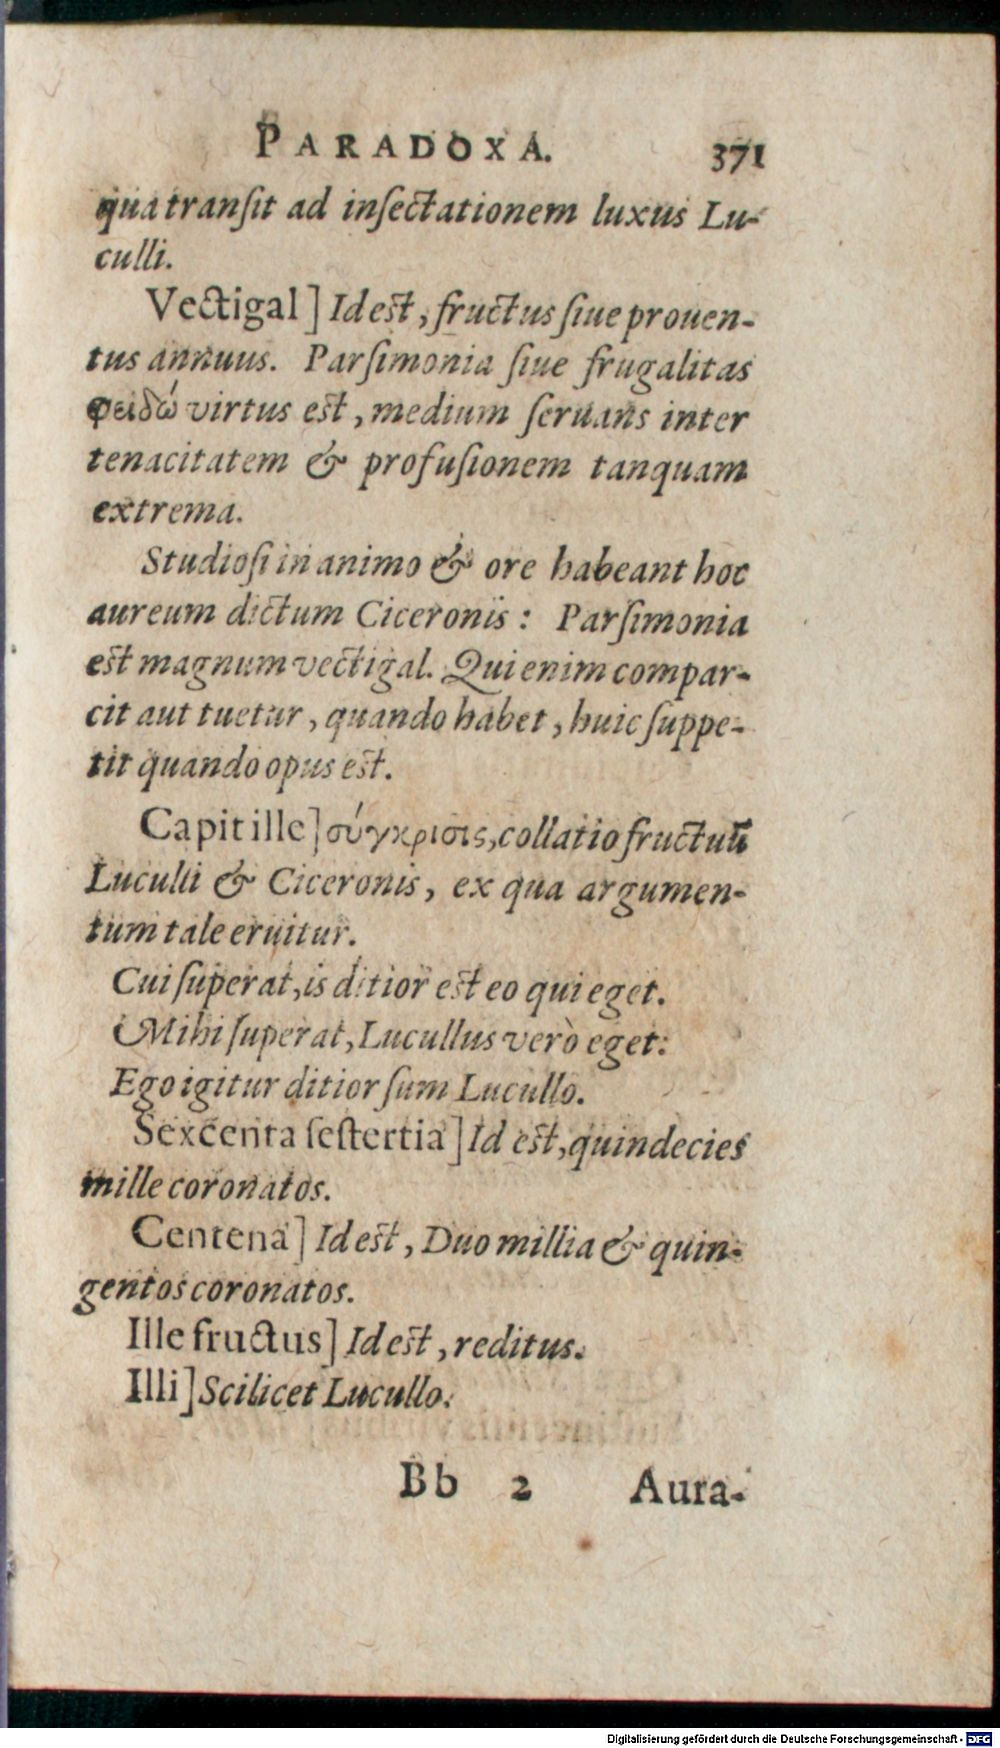 PARADOXA. 371
qua tranſit ad inſectationem luxus Lu-
culli.
Vectigal] Id eſt, fructus ſiue prouen-
tus annuus. Parſimonia ſiue frugalitas
φειδώ virtus eſt, medium ſeruans inter
tenacitatem & profuſionem tanquam
extrema.
Studioſi in animo & ore habeant hoc
aureum dictum Ciceronis: Parſimonia
eſt magnum vectigal. Qui enim compar-
cit aut tuetur, quando habet, huic ſuppe-
tit quando opus eſt.
Capit ille] σύγκρισις, collatio fructuū
Luculli & Ciceronis, ex qua argumen-
tum tale eruitur.
Cui ſuperat, is ditior eſt eo qui eget.
Mihi ſuperat, Lucullus verò eget:
Ego igitur ditior ſum Lucullo.
Sexcenta ſeſtertia] Id eſt, quindecies
mille coronatos.
Centena] Id eſt, Duo millia & quin-
gentos coronatos.
Ille fructus] Id eſt, reditus.
Illi] Scilicet Lucullo.
Bb 2 Aura-
Digitalisierung gefördert durch die Deutsche Forschungsgemeinschaft - DFG